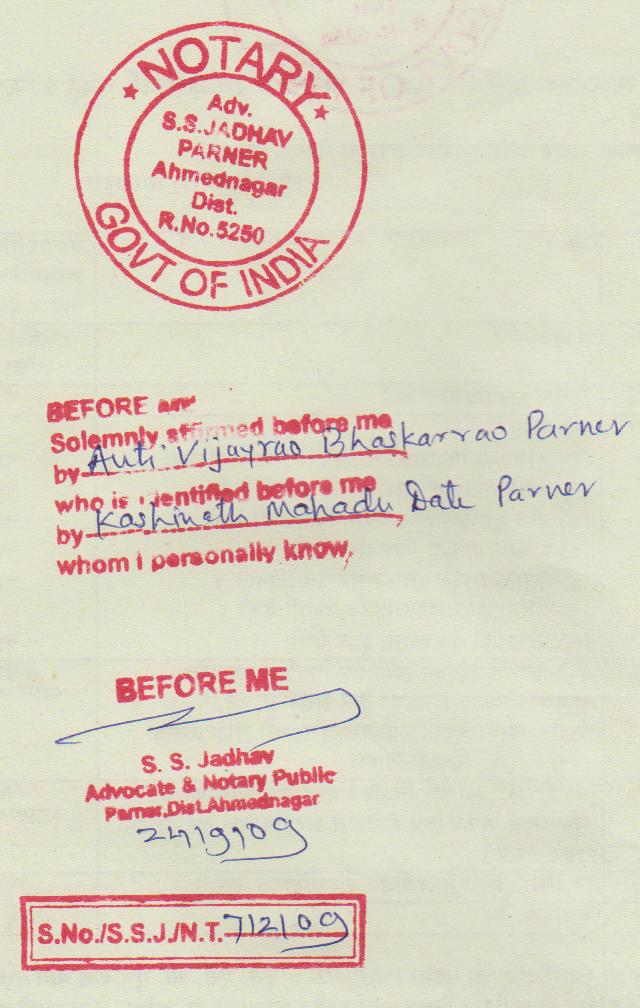 NOTARY
Adv.
S.S.JADHAV
PARNER
Ahmednagar
Dist.
R.No.5250
GOVT OF INDIA
BEFORE ME
Solemnly affirmed before me
by Auti Vijayrao Bhaskarrao Parner
who is identified before me
by Kashinath Mahadu Date Parner
whom I personally know.
BEFORE ME
S. S. Jadhav
Advocate & Notary Public
Parner,Dist.Ahmednagar
24/9/09
S.No./S.S.J./N.T. 712/09